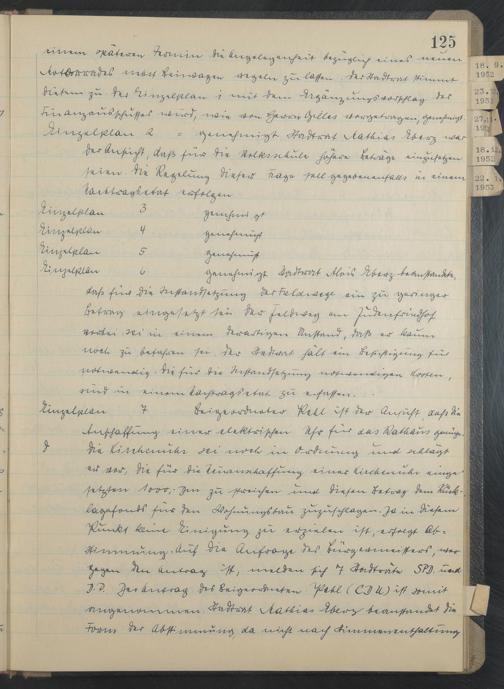 125
18. 9. 1952
23.
1951
27.11.
18.12.
1953
22.
1953
einem späteren Termin die Angelegenheit bezüglich eines neuen
Motorrades mit Beiwagen regeln zu lassen. Der Stadtrat stimmt
diesem zu. Der Einzelplan 1 mit dem Ergänzungsvorschlag des
Finanzausschusses wird, wie von Herrn Gilles vorgetragen, genehmigt.
Einzelplan 2 = genehmigt Stadtrat Mathias Eberz war
der Ansicht, daß für die Volksschule höhere Beträge einzusetzen
seien die Regelung dieser Frage soll gegebenenfalls in einem
Nachtragsetat erfolgen
Einzelplan 3 genehmigt
Einzelplan 4 genehmigt
Einzelplan 5 genehmigt
Einzelplan 6 genehmigt Stadtrat Alois Eberz beanstandete,
daß für die Instandsetzung der Feldwege ein zu geringer
Betrag eingesetzt sei der Feldweg am Judenfriedhof
vorbei sei in einem derartigen Zustand, daß er kaum
noch zu befahren sei der Stadtrat hält ein Besichtigung für
notwendig. die für die Instandsetzung notwendigen Kosten,
sind in einem Nachtragsetat zu erfassen.
Einzelplan 7 Beigeordneter Pehl ist der Ansicht, daß die
Anschaffung einer elektrischen Uhr für das Rathaus genüge.
die Kirchenuhr sei noch in Ordnung und schlägt
er vor, die für die Neuanschaffung einer Kirchenuhr einge
setzten 1000,- DM zu streichen und diesen Betrag dem Rück-
lagefonds für den Wohnungsbau zuzuschlagen. Da in diesem
Punkt keine Einigung zu erzielen ist, erfolgt Ab-
stimmung. Auf die Anfrage des Bürgermeisters, wer
gegen den Antrag ist, melden sich 7 Stadträte SPD und
Der Antrag des Beigeordneten Pehl (CDU) ist somit
angenommen Stadtrat Mathias Eberz beanstandet die
Form der Abstimmung da nicht nach Stimmenenthaltung